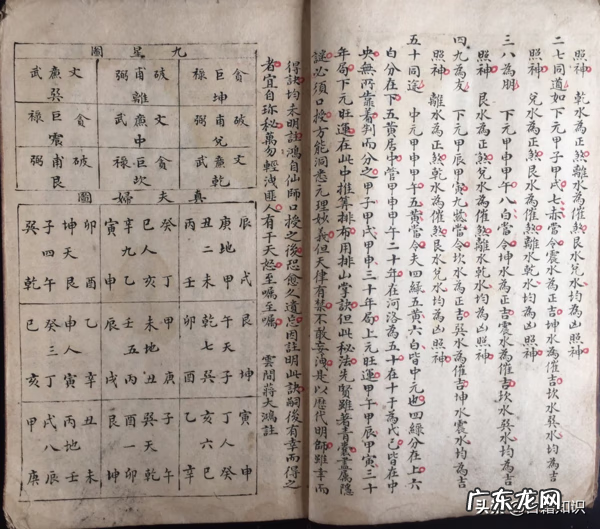 照神　乾水為正煞離水為催煞艮水兌水均為凶照神
二七同道如　下元甲子甲戌七赤當令震水為正吉坤水為催吉坎水巽水均為吉
照神　兌水為正煞艮水為催煞離水乾水均為凶照神
三八為朋　下元甲申甲午八白當令坤水為正吉震水為催吉坎水巽水均為吉
照神　艮水為正煞兌水為催煞離水乾水均為凶照神
四九為友　下元甲辰甲寅九紫當令坎水為正吉巽水為催吉坤水震水均為吉
照神　離水為正煞乾水為催煞艮水兌水均為凶照神
五十同途　中元甲申甲午五黃當令夫四綠五黃六白皆中元也四綠分在上六
白分在下五黃居中管甲申甲午二十年在河洛為五十在十干為戊己皆在中
央無所靠著判而分之甲子甲戌甲申三十年局上元旺運甲午甲辰甲寅三十
年局下元旺運在此中推算排布用排山掌訣但此秘法先賢雖著青囊盡屬隱
謎必須口授方能洞悉元理妙義但天律有禁不敢妄洩是以歷代明師雖幸而
得訣均未明註鴻自山師口授之後恐愈久遺忘因註明此訣嗣後有幸而得之
者宜自珍秘萬勿輕洩匪人有干天怒至囑至囑　雲間蔣大鴻註
九星圖
貪巨祿
坤
破甫弼
離
文廉武
巽
破甫弼
兌
文廉武
中
貪巨祿
震
文廉武
乾
貪巨祿
坎
破甫弼
艮
真夫婦圖
辰戌
庚地甲
丑二未
丙壬
癸丁
巳人亥
辛九乙
寅申
卯酉
坤天艮
子四午
巽乾
艮坤
午天子
乾七巽
卯酉
甲庚
未地丑
壬五丙
辰戌
乙辛
申人寅
癸三丁
巳亥
寅申
丁人癸
亥六巳
乙辛
子午
巽天乾
酉卯
艮坤
丑未
丙地壬
戌八辰
甲庚
广东龙网